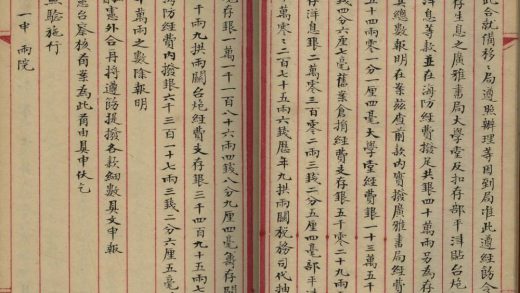 此合就備移局遵照辦理等因到局准此遵經飭令
存生息之廣雅書局大學堂及扣存部平洋貼台炮
洋息等款並在海防經費撥足共銀四十萬兩另為存
其總數報明在案茲查前款內實撥廣雅書局經費
五十四兩零一分一厘四毫大學堂經費銀一十三萬五千
錢四分六厘七毫舊業倉捐經費支存銀五千零二十九兩
存洋息銀二萬零三百零二兩三錢二分五厘四毫部平洋
萬零二百七十五兩六錢歷年九拱兩關稅務司代抽
存銀一萬一千一百八十六兩四錢八分九厘四毫籌存關
千兩九拱兩關台炮經費支存銀二千四百九十五兩七
海防經費內撥銀六千三百一十七兩三錢二分六厘五毫
十萬兩之數除報明
憲外合再將遵飭提撥各款細數具文申報
憲台察核為此備由具申伏乞
照驗施行
一申 兩院